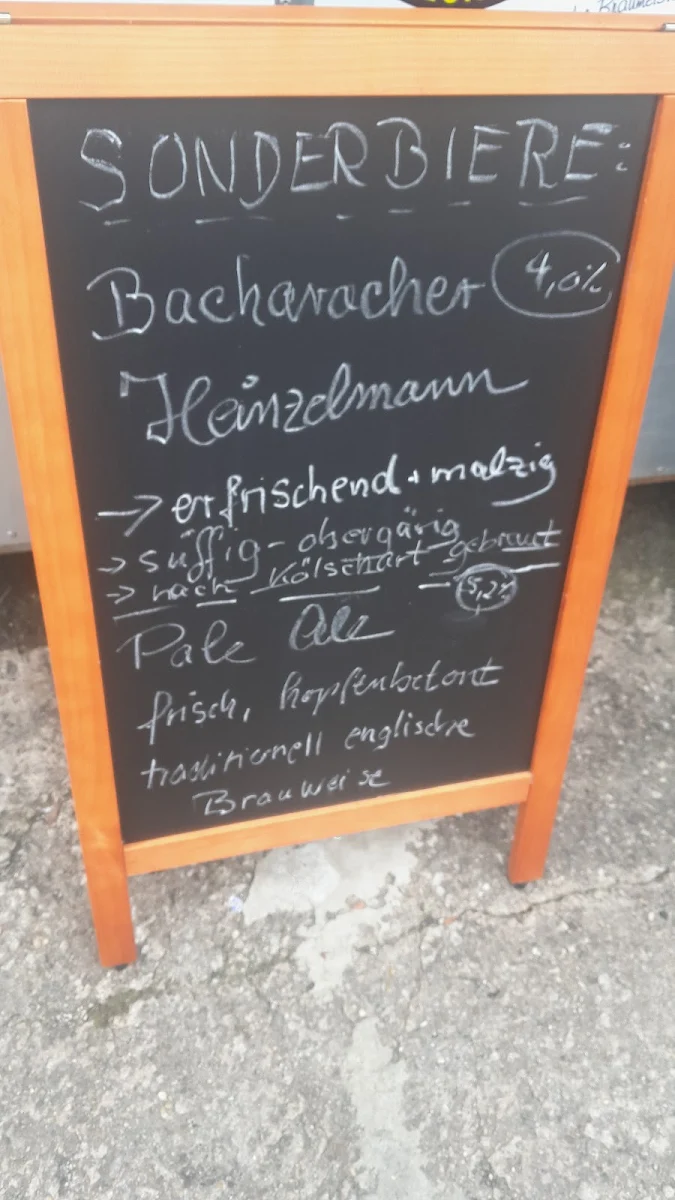 Braumeist
SONDERBIERE:
Bacharacher 4,0%
Heinzelmann
→ erfrischend + malzig
→ süffig - obergärig
→ nach Kölschart gebraut
Pale Ale 5,2%
frisch, hopfenbetont
traditionell englische
Brauweise